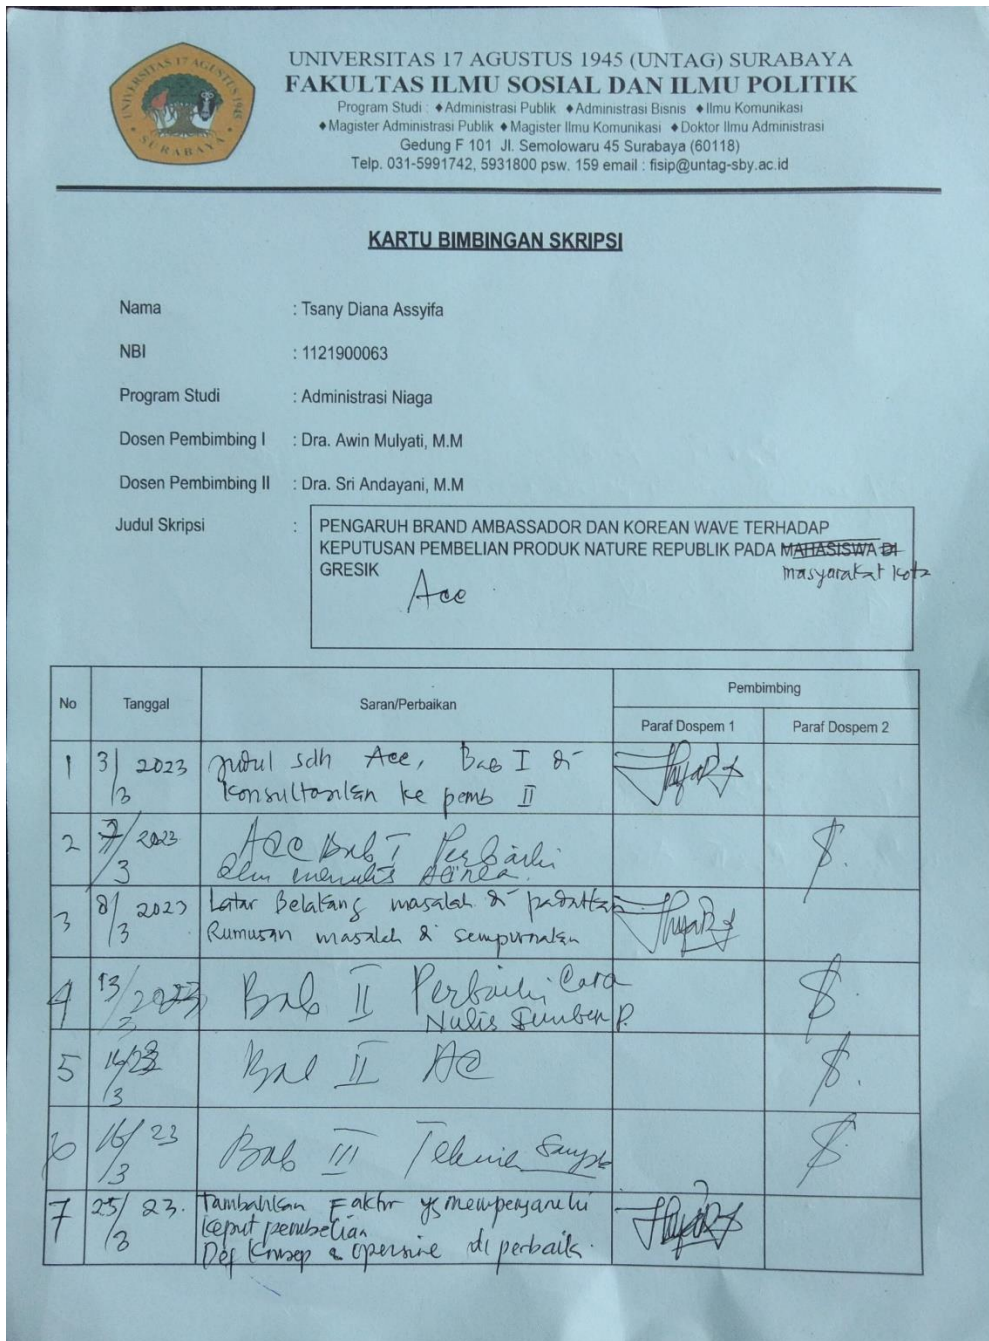 UNIVERSITAS 17 AGUSTUS 1945
SURABAYA
UNIVERSITAS 17 AGUSTUS 1945 (UNTAG) SURABAYA
FAKULTAS ILMU SOSIAL DAN ILMU POLITIK
Program Studi : ♦Administrasi Publik ♦Administrasi Bisnis ♦Ilmu Komunikasi
♦Magister Administrasi Publik ♦Magister Ilmu Komunikasi ♦Doktor Ilmu Administrasi
Gedung F 101 Jl. Semolowaru 45 Surabaya (60118)
Telp. 031-5991742, 5931800 psw. 159 email : fisip@untag-sby.ac.id
KARTU BIMBINGAN SKRIPSI
Nama : Tsany Diana Assyifa
NBI : 1121900063
Program Studi : Administrasi Niaga
Dosen Pembimbing I : Dra. Awin Mulyati, M.M
Dosen Pembimbing II : Dra. Sri Andayani, M.M
Judul Skripsi :
PENGARUH BRAND AMBASSADOR DAN KOREAN WAVE TERHADAP
KEPUTUSAN PEMBELIAN PRODUK NATURE REPUBLIK PADA MAHASISWA DI
GRESIK masyarakat kota
Acc
No Tanggal Saran/Perbaikan Pembimbing
Paraf Dospem 1 Paraf Dospem 2
1 3/3 2023 Judul sdh Acc, Bab I di
konsultasikan ke pemb II
2 7/3 2023 ACC Bab I Perbaiki
dlm menulis
3 8/3 2023 Latar Belakang masalah di padatkan
Rumusan masalah di sempurnakan
4 13/3 2023 Bab II Perbaiki Cara
Nulis Sumber P.
5 14/3 23 Bab II ACC
6 16/3 23 Bab III Teknik Sampel
7 25/3 23. Tambahkan Faktor yg mempengaruhi
keput pembelian
Def Konsep & diperbaiki.